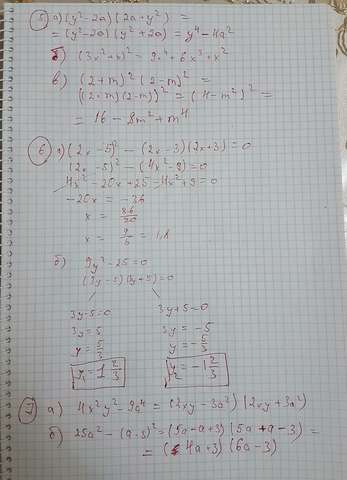 ⑤ а) (y²-2a)(2a+y²) =
= (y²-2a)(y²+2a) = y⁴-4a²
б) (3x²+x)² = 9x⁴+6x³+x²
в) (2+m)²(2-m)² =
((2+m)(2-m))² = (4-m²)² =
= 16-8m²+m⁴
⑥ а) (2x-5)² - (2x-3)(2x+3)=0
(2x-5)² - (4x²-9)=0
4x²-20x+25-4x²+9=0
-20x = -36
x = 36/20
x = 9/5 = 1,8
б) 9y²-25=0
(3y-5)(3y+5)=0
3y-5=0 3y+5=0
3y=5 3y = -5
y=5/3 y=-5/3
y₁=1 2/3 y₂=-1 2/3
⑦ а) 4x²y²-9a⁴ = (2xy-3a²)(2xy+3a²)
б) 25a²-(a-3)²=(5a-a+3)(5a+a-3)=
= (4a+3)(6a-3)